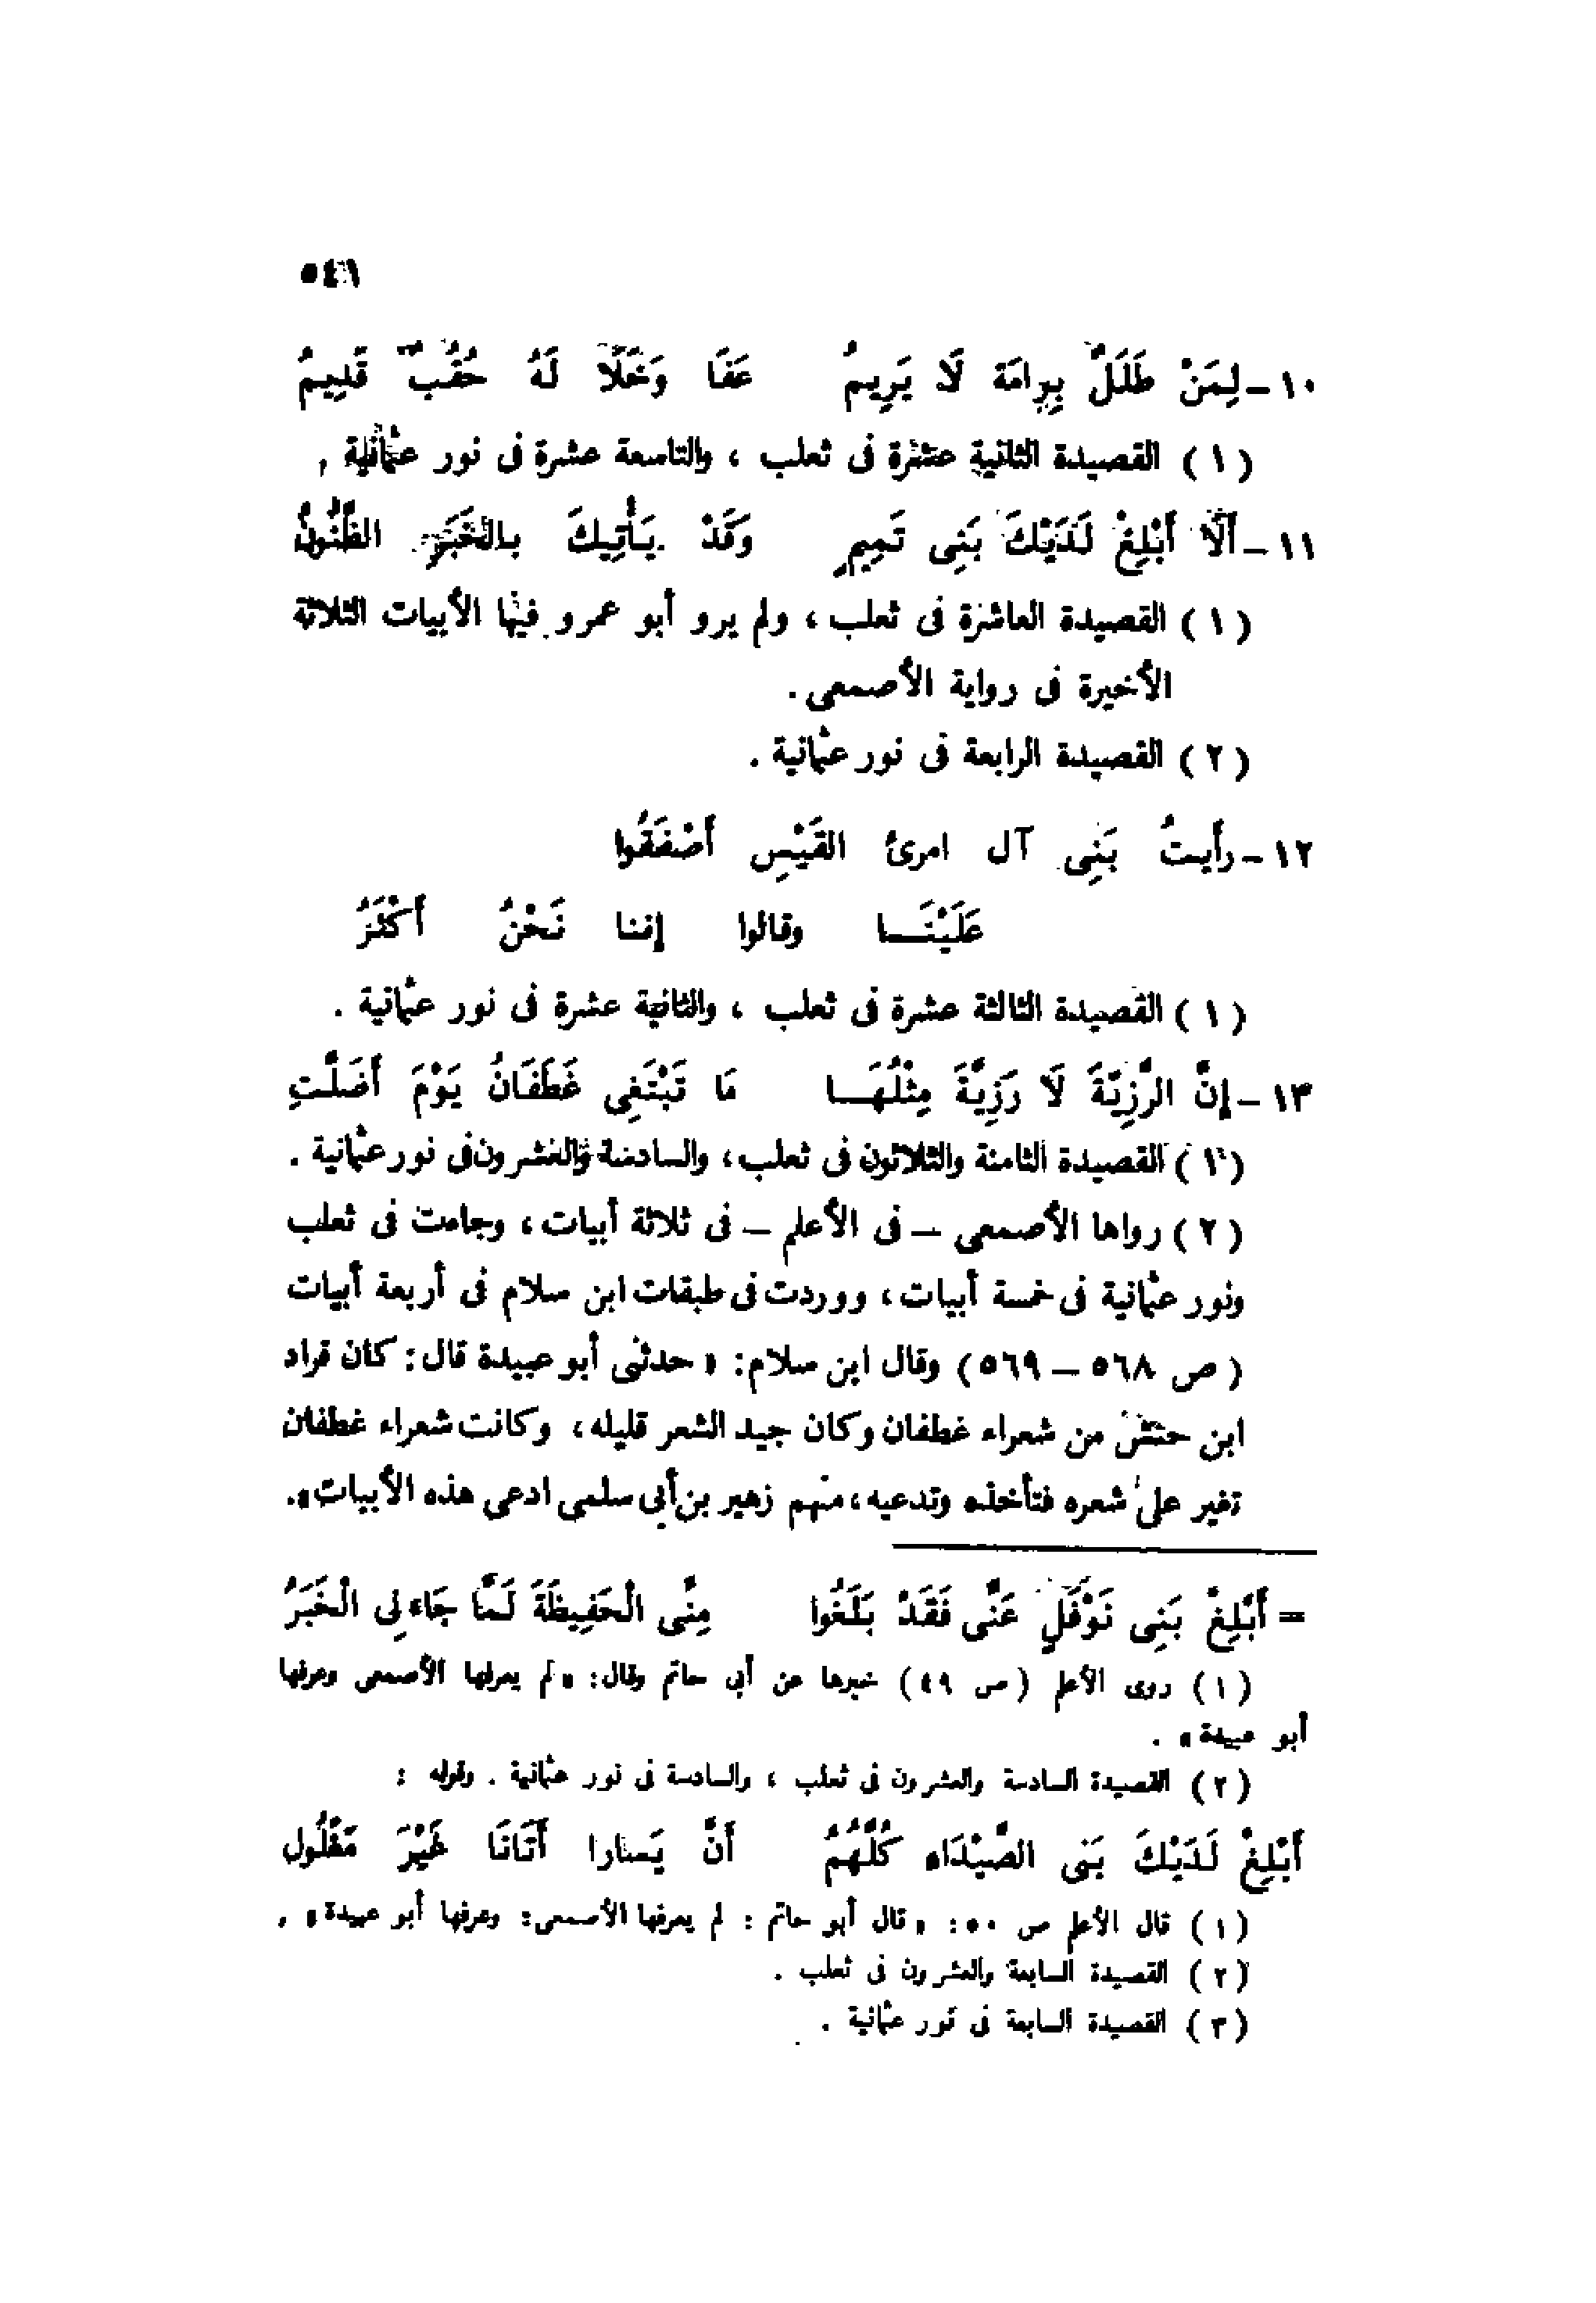 ٥٤١
١٠ - لِمَنْ طَلَلٌ بِرِامَة لَا يَرِيمُ عَفَا وَخَلَا لَهُ حُقُبٌ قَدِيمُ
( ١ ) القصيدة الثانية عشرة فى ثعلب ، والتاسعة عشرة فى نور عثمانية .
١١ - أَلَا أَبْلِغْ لَدَيْكَ بَنِى تَمِيمٍ وَقَدْ يَأْتِيكَ بالخَبَرِ الظَّنُونُ
( ١ ) القصيدة العاشرة فى ثعلب ، ولم يرو أبو عمرو فيها الأبيات الثلاثة
الأخيرة فى رواية الأصمعى .
( ٢ ) القصيدة الرابعة فى نور عثمانية .
١٢ - رأَيتُ بَنِى آل امرئ القَيْسِ أَصْفَقُوا
عَلَيْنَـــا وقالوا إننا نَحْنُ أَكْثَرُ
( ١ ) القصيدة الثالثة عشرة فى ثعلب ، والثانية عشرة فى نور عثمانية .
١٣ - إِنَّ الرَّزِيَّةَ لَا رَزِيَّةَ مِثْلُهَــا مَا تَبْتَغِى غَطَفَانُ يَوْمَ أَضَلَّتِ
( ١ ) القصيدة الثامنة والثلاثون فى ثعلب ، والسادسة والعشرون فى نور عثمانية .
( ٢ ) رواها الأصمعى – فى الأعلم – فى ثلاثة أبيات ، وجاءت فى ثعلب
ونور عثمانية فى خمسة أبيات ، ووردت فى طبقات ابن سلام فى أربعة أبيات
( ص ٥٦٨ – ٥٦٩ ) وقال ابن سلام : « حدثنى أبو عبيدة قال : كان قراد
ابن حنش من شعراء غطفان وكان جيد الشعر قليله ، وكانت شعراء غطفان
تغير على شعره فتأخذه وتدعيه ، منهم زهير بن أبى سلمى ادعى هذه الأبيات » .
= أَبْلِغْ بَنِى نَوْفَلٍ عَنِّى فَقَدْ بَلَغُوا مِنِّى الْحَفِيظَةَ لَمَّا جَاءنِى الْخَبَرُ
( ١ ) روى الأعلم ( ص ٤٩ ) خبرها عن أبى حاتم وقال : « لم يعرفها الأصمعى وعرفها
أبو عبيدة » .
( ٢ ) القصيدة السادسة والعشرون فى ثعلب ، والسادسة فى نور عثمانية . وقوله :
أَبْلِغْ لَدَيْكَ بَنى الصَّيْدَاء كُلَّهُمُ أَنَّ يَسارا أَتَانَا غَيْرَ مَغْلُول
( ١ ) قال الأعلم ص ٥٠ : « قال أبو حاتم : لم يعرفها الأصمعى : وعرفها أبو عبيدة » .
( ٢ ) القصيدة السابعة والعشرون فى ثعلب .
( ٣ ) القصيدة السابعة فى نور عثمانية .